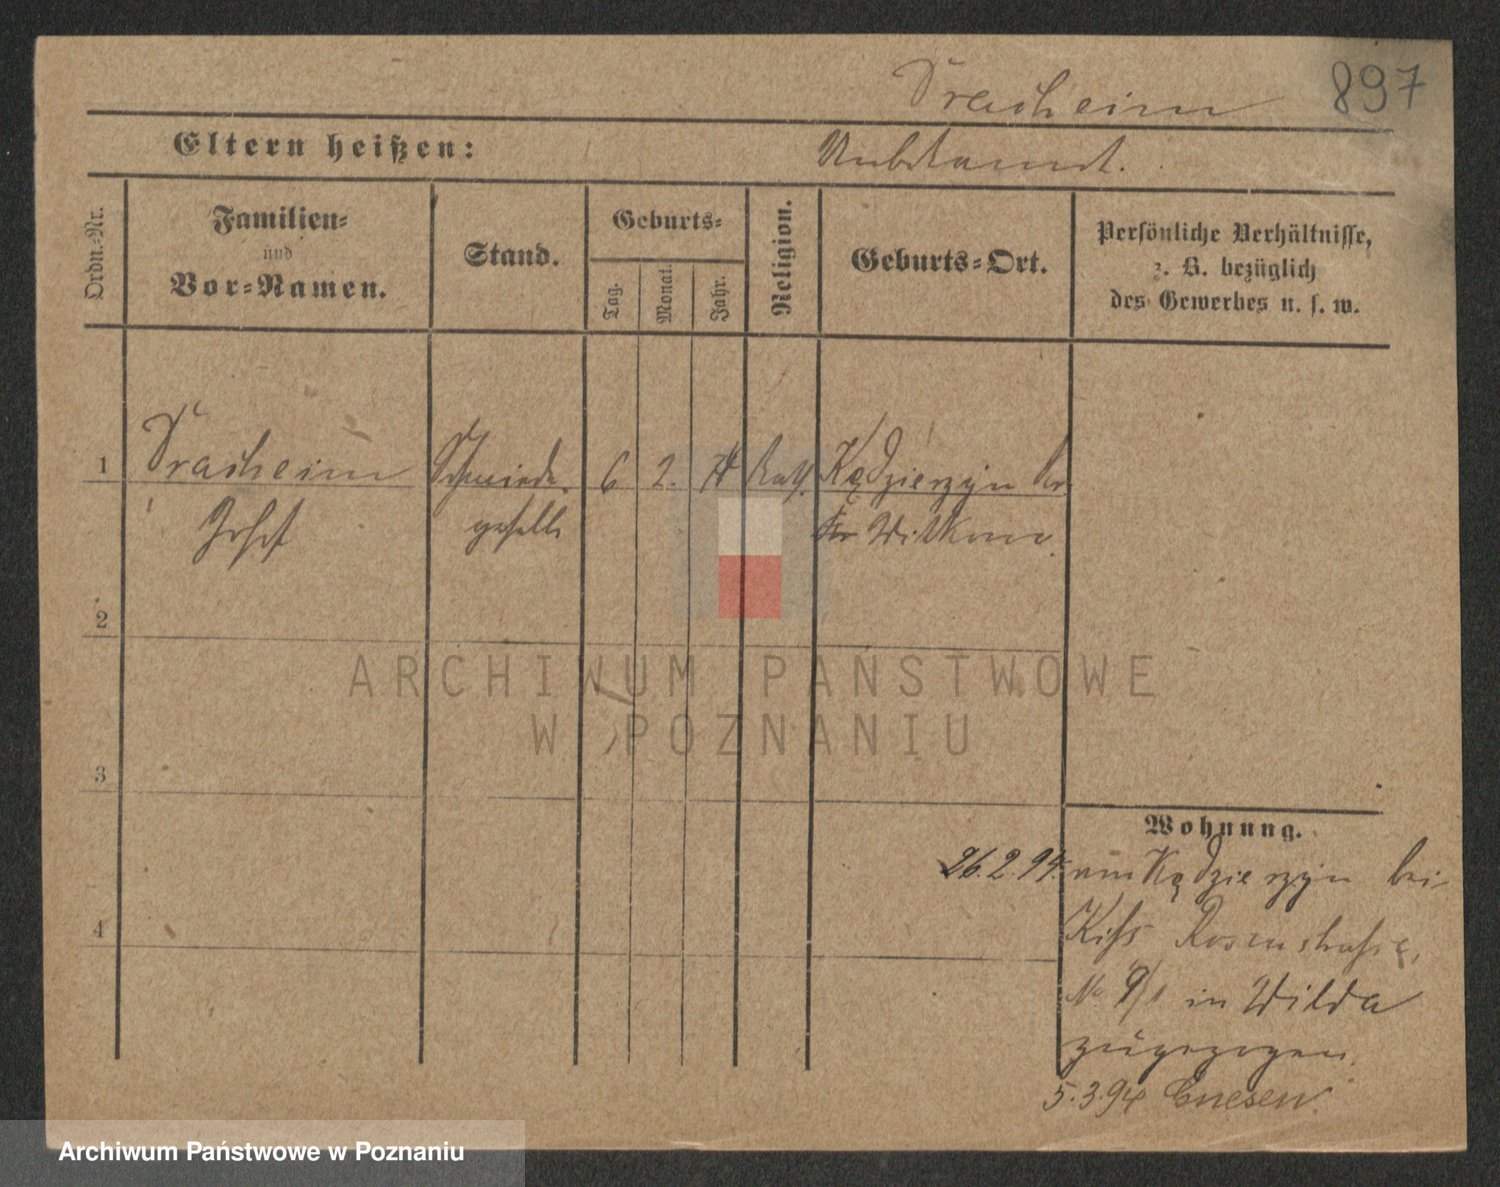 897
Draeheim
Eltern heißen: Unbekannt.
Ordn.-Nr.
Familien-
und
Vor-Namen.
Stand.
Geburts-
Tag.
Monat.
Jahr.
Religion.
Geburts-Ort.
Persönliche Verhältnisse,
z. B. bezüglich
des Gewerbes u. s. w.
1 Draheim Schmiede- 6 2. Kath. Kędzierzyn Kr
Josef geselle Kr Witkowo.
2
3
4
ARCHIWUM PAŃSTWOWE
W POZNANIU
Wohnung.
26.2.94. von Kędzierzyn bei
Rosenstraße,
No 9/1 in Wilda
zugezogen.
5.3.94 Gnesen.
Archiwum Państwowe w Poznaniu